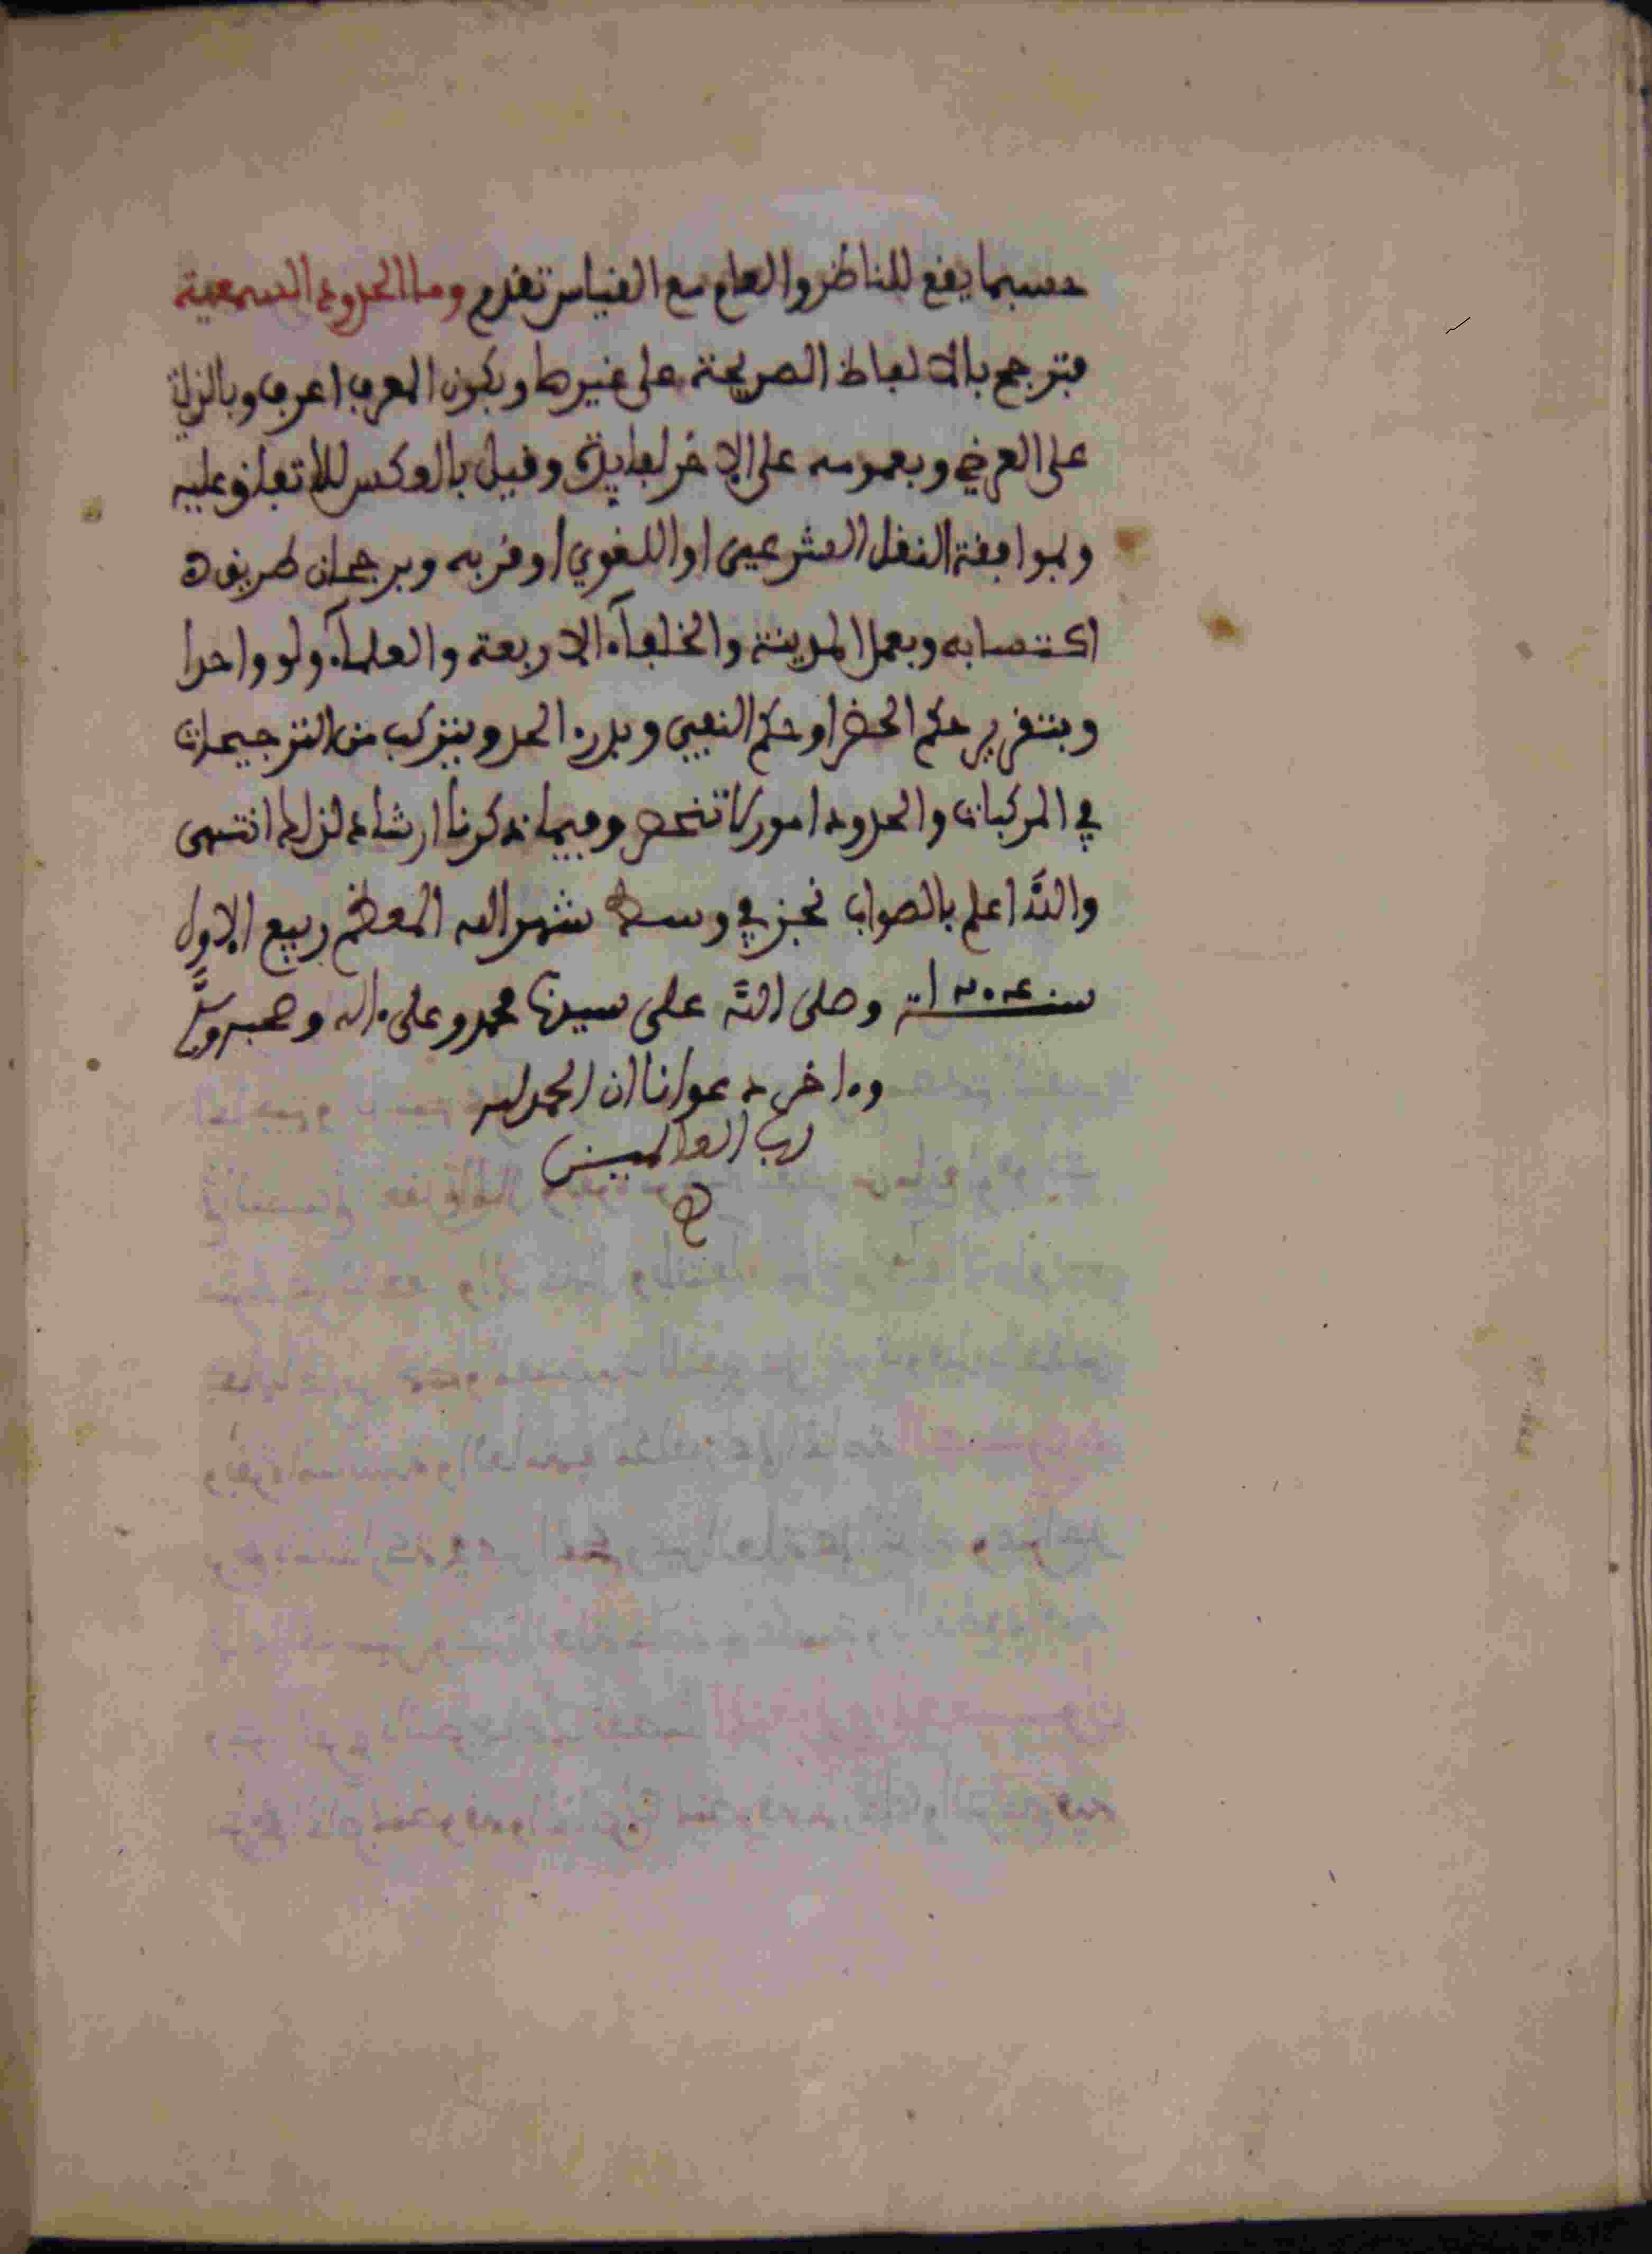 حسبما يقع للناظر والعام مع القياس تقدم وما الحدود السمعية
فترجح بالالفاظ الصريحة على غيرها وبكون المعرف اعرف وبالذاتي
على العرضي وبعمومه على الاخر لفايدته وقيل بالعكس للاتفاق عليه
وبموافقة النقل الشرعيى او اللغوي او قربه وبرجحان طريق
اكتسابه وبعمل المدينة والخلفآء الاربعة والعلمآء ولو واحدا
وبتقرير حكم الحضر او حكم النفيى وبدرء الحد ويتركب من الترجيحات
في المركبات والحدود امور لا تنحصر وفيما ذكرنا ارشاد لذلك انتهى
والله اعلم بالصواب نجز في وسط شهر الله المعظم ربيع الاول
سنة وصلى الله على سيدنا محمد وعلى ءاله وصحبه وسلم
وءاخر دعوانا ان الحمد لله
رب العالمين